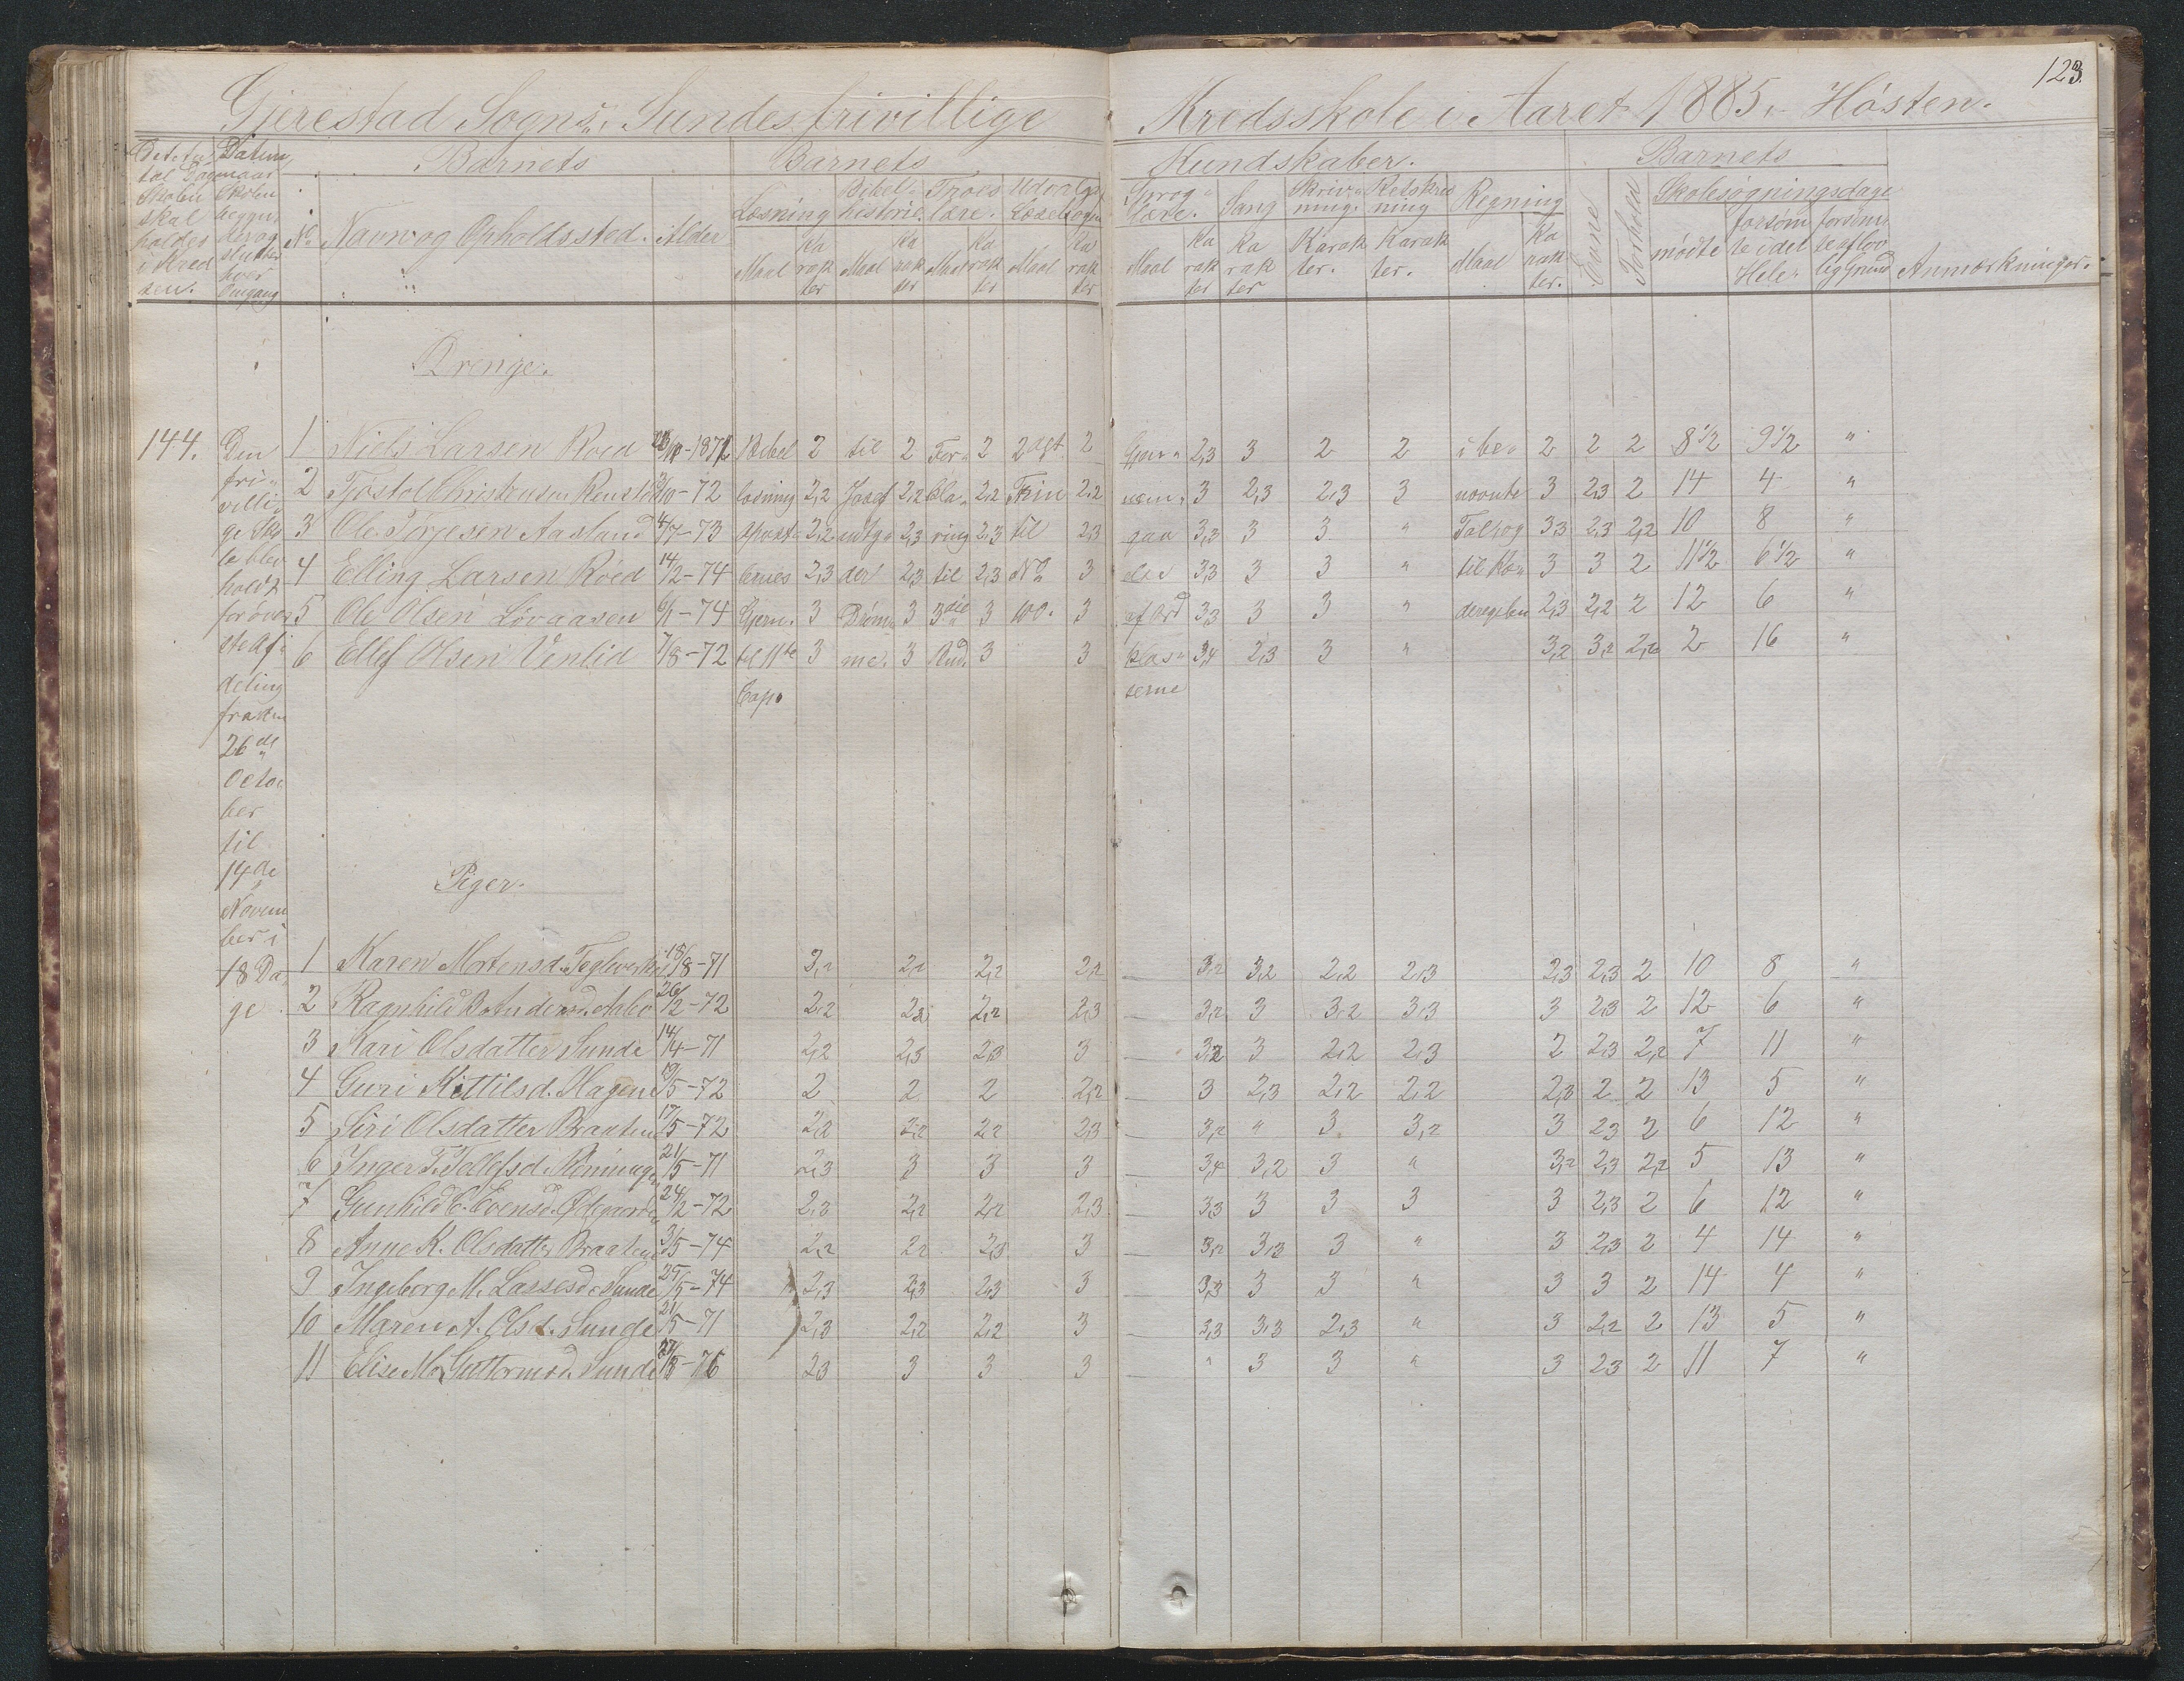 123.
Gjerestad Sogns Sundes frivillige Kredsskole i Aaret 1885. Høsten.
Barnets Barnets Kundskaber. Barnets
Læsning Bibelhistorie. Troeslære. Sproglære. Sang Skrivning. Retskrivning Regning Evne Forhold Skolesøgningsdage
No Navn og Opholdssted. Alder Maal Karakter Maal Karakter Maal Karakter Maal Karakter Maal Karakter Karakter Karakter. Karakter. Maal Karakter. mødte forsømte i det Hele. forsømte af lovlig Grund Anmærkninger.
Drenge.
144. Den 1 Niels Larsen Roed 1872 Bibel 2 til 2 For 2 2 agt. 2 2,3 3 2 2 i be 2 2 2 8 1/2 9 1/2 "
fri 2 Tjøstol Christensen 10-72 læsning 2,2 Josef 2,2 kla 2,2 Trin 2,2 nem 3 2,3 2,3 3 nævnte 3 2,3 2 14 4 "
villi 3 Ole Tørjesen Aasland 4/7-73 Apost 2,2 2,3 ring 2,3 til 2,3 gaa 3,3 3 3 " Tal og 3,3 2,3 2,2 10 8 "
ge Sko
le blev 4 Elling Larsen Røed 14/2-74 lenes 2,3 der 2,3 til 2,3 No 3 else 3,3 3 3 " til 3 3 2 11 1/2 6 1/2 "
holdt
for øver 5 Ole Olsen Løvaasen 6/1-74 Gjern. 3 Drøm 3 3die 3 100. 3 af Ord 3,3 3 3 " 2,3 2,2 2 12 6 "
ste Af 6 Ellef Olsen Venlid 7/8-72 til 11te 3 me. 3 3 3 klas 3,4 2,3 3 " 3,2 3,2 2,2 2 16 "
deling Cap. serne
fra den
26de
Octo
ber
til
14de Piger.
Novem
ber i
18 Da 1 Karen Mortensd. Teglverket 18/8-71 3,2 2,2 2,2 2,2 3,2 3,2 2,2 2,3 2,3 2,3 2 10 8 "
ge. 2 Ragnhild B. Andersd. Aabo 26/2-72 2,2 2,2 2,2 2,3 3,2 3 3,2 3,3 3 2,3 2 12 6 "
3 Kari Olsdatter Sunde 14/4-71 2,2 2,3 2,3 3 3,2 3 2,2 2,3 2 2,3 2,2 7 11 "
4 Guri Kittilsd. Hagene 19/5-72 2 2 2 2,2 3 2,3 2,2 2,2 2,3 2 2 13 5 "
5 Siri Olsdatter Braaten 17/5-72 2,2 2,2 2,2 2,3 3,2 " 3 3,2 3 2,3 2 6 12 "
6 Inger T. Tellefsd. 21/5-71 2,3 3 3 3 3,4 3,2 3 " 3,2 2,3 2,2 5 13 "
7 Gunhild C. Evensd. Ødegaarden 24/2-72 2,3 2,2 2,2 2,3 3,3 3 3 3 3 2,3 2 6 12 "
8 Anne K. Olsdatter Braaten 3/5-74 2,2 2,2 2,3 3 3,2 3,3 3 " 3 2,3 2 4 14 "
9 Ingeborg M. Lassesd. Sunde 25/5-74 2,3 2,3 2,3 3 3,3 3 3 " 3 3 2 14 4 "
10 Maren A. Olsd. Sunde 21/5-71 2,3 2,2 2,2 3 3,3 3,3 2,3 " 3 2,2 2 13 5 "
11 Elise M. Guttormsd. Sunde 76 2,3 3 3 3 " 3 3 " 3 2,3 2 11 7 "